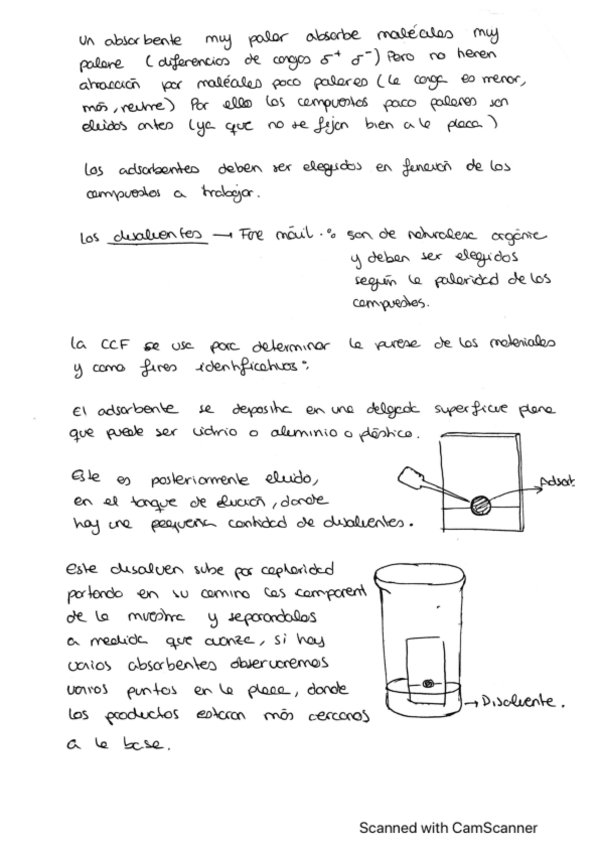 un absorbente muy polar absorbe moléculas muy
polare (diferencias de cargas δ+ δ-) Pero no tienen
atracción por moléculas poco polares (la carga es menor,
más, neutre) Por ello los compuestos poco polares son
eluidos antes (ya que no se fijan bien a la placa)
Los adsorbentes deben ser elegidos en función de los
compuestos a trabajar.
Los disolventes → Fase móvil : son de naturaleza orgánic
y deben ser elegidos
según la polaridad de los
compuestos.
La CCF se usa para determinar la pureza de los materiales
y como fines identificativos:
El adsorbente se deposita en una delgada superficie plana
que puede ser vidrio o aluminio o plástico.
Este es posteriormente eluido,
en el tanque de elución, donde
hay una pequeña cantidad de disolventes.
Adsorb.
Este disolven sube por capilaridad
portando en su camino las component
de la muestra y separandolos
a medida que avanza, si hay
varios absorbentes observaremos
varios puntos en la placa, donde
los productos estaran más cercanos
a la base.
→ Disolvente.
Scanned with CamScanner